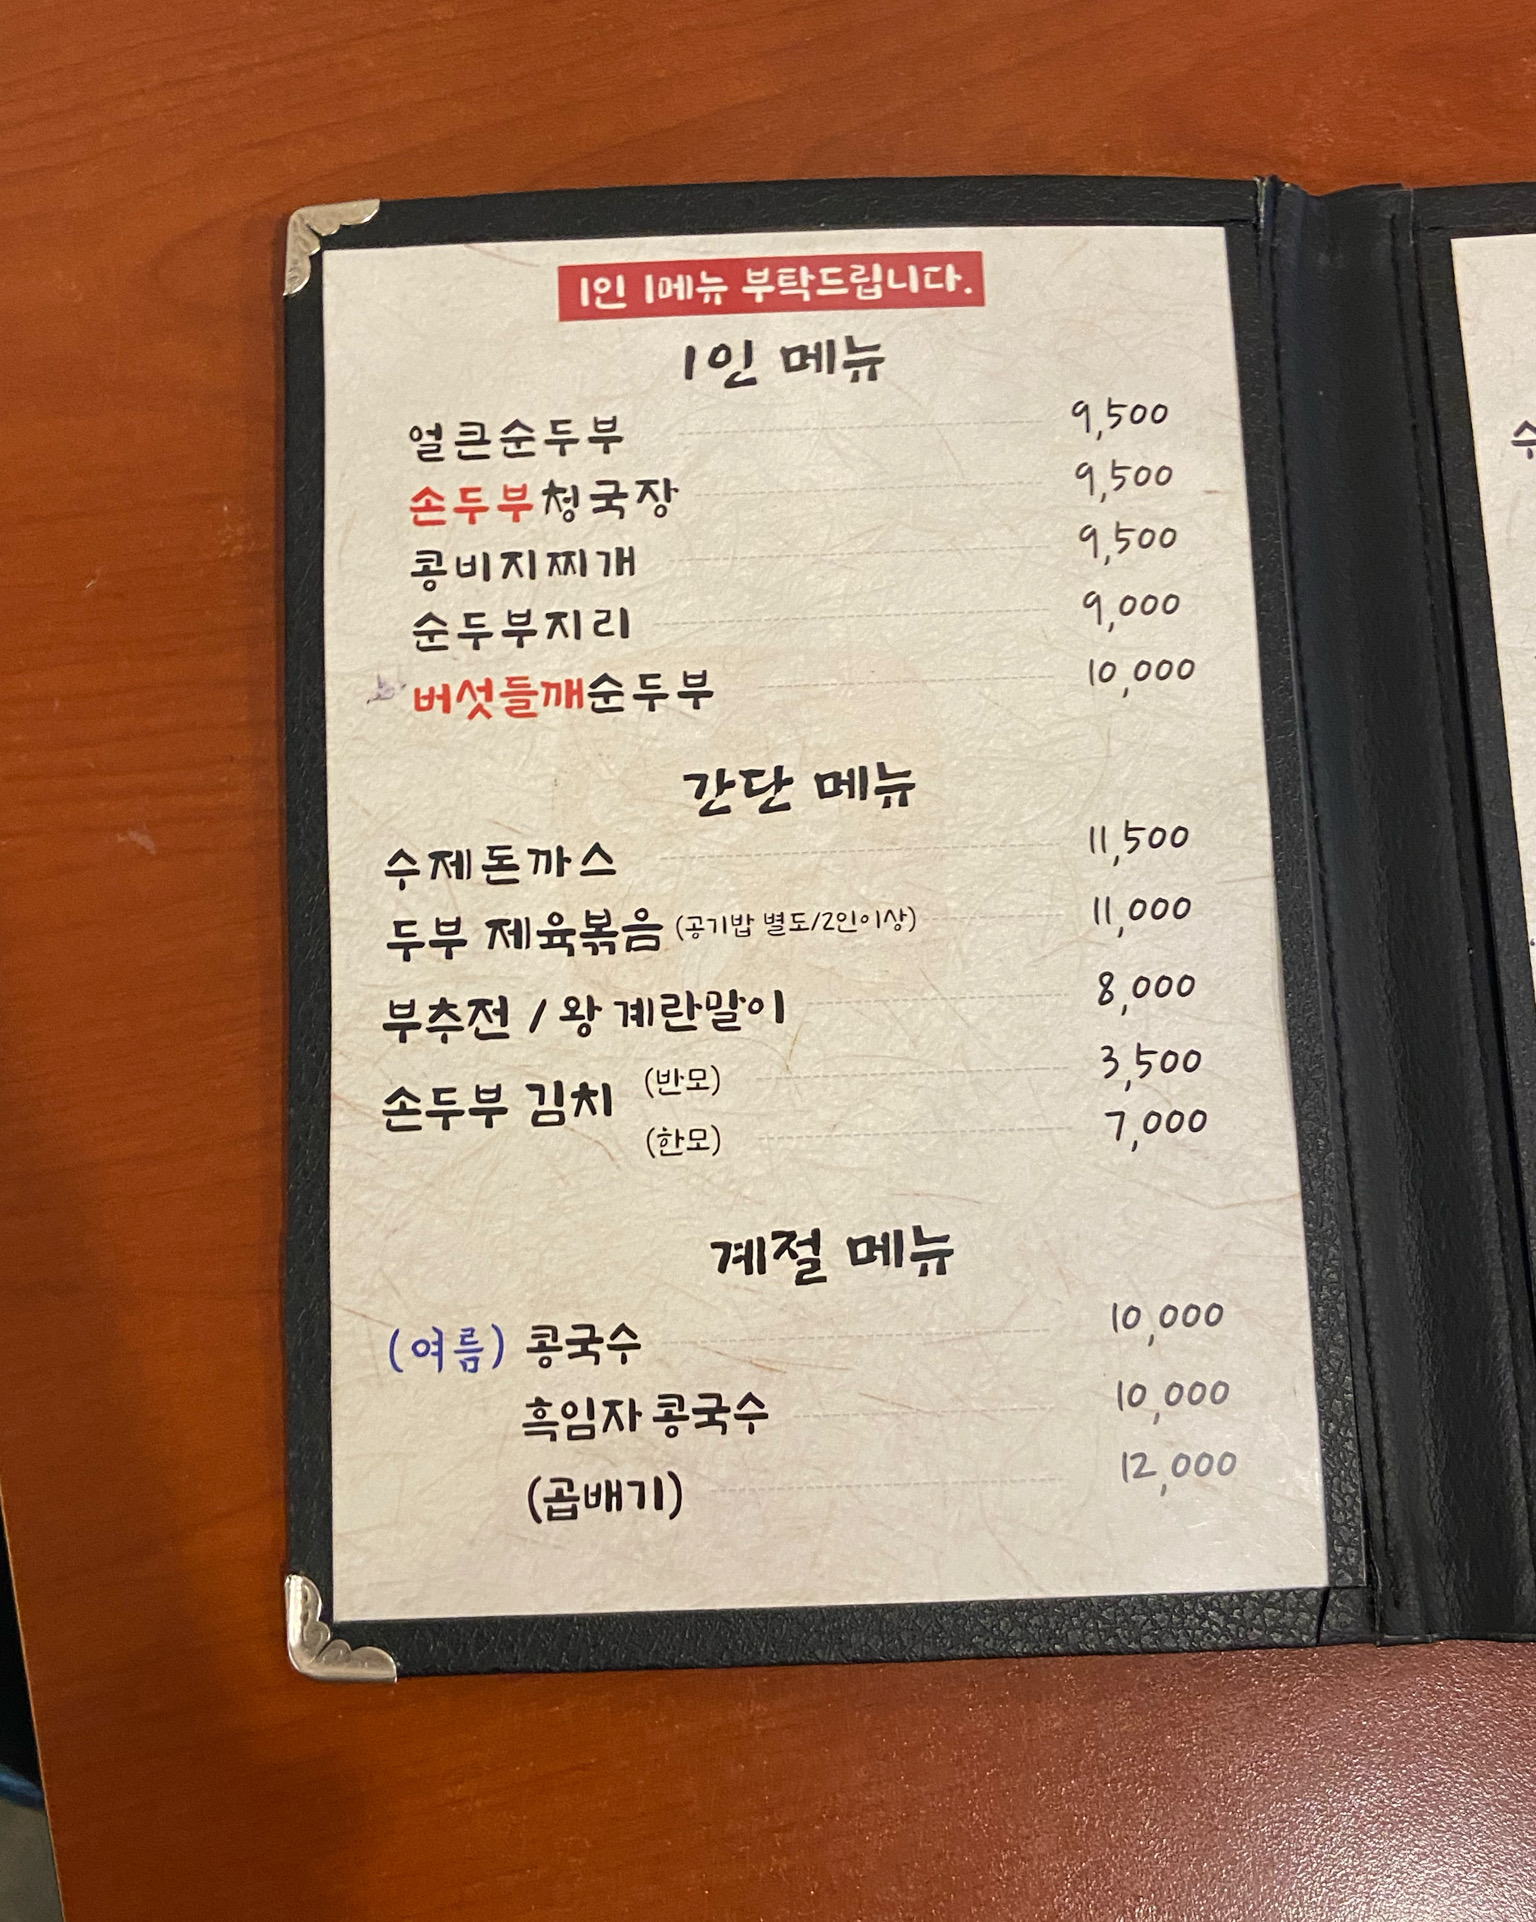 1인 1메뉴 부탁드립니다.
1인 메뉴
얼큰순두부 9,500
손두부청국장 9,500
콩비지찌개 9,500
순두부지리 9,000
버섯들깨순두부 10,000
간단 메뉴
수제돈까스 11,500
두부 제육볶음 (공기밥 별도/2인이상) 11,000
부추전 / 왕 계란말이 8,000
손두부 김치 (반모) 3,500
(한모) 7,000
계절 메뉴
(여름) 콩국수 10,000
흑임자 콩국수 10,000
(곱배기) 12,000